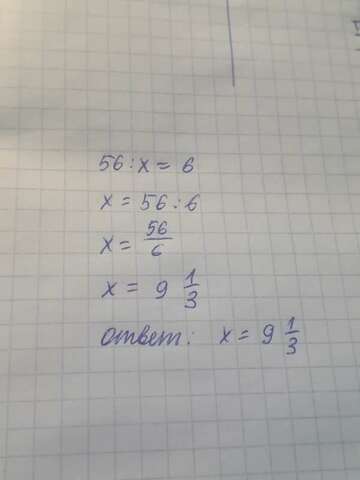 56 : x = 6
x = 56 : 6
x = 56/6
x = 9 1/3
ответ: x = 9 1/3